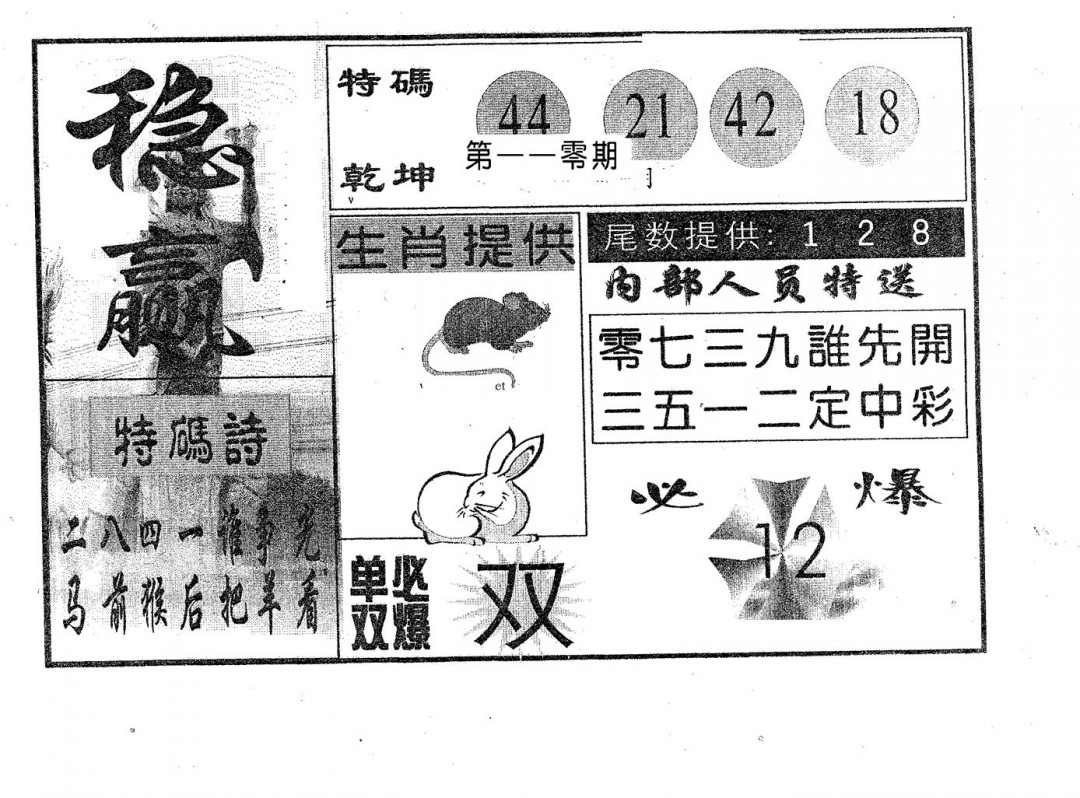 稳赢
特碼
乾坤
44 21 42 18
第一一零期
生肖提供
et
尾数提供: 1 2 8
内部人员特送
零七三九誰先開
三五一二定中彩
特碼詩
二八四一谁争先
马前猴后把羊看
单必
双爆
双
必爆
12